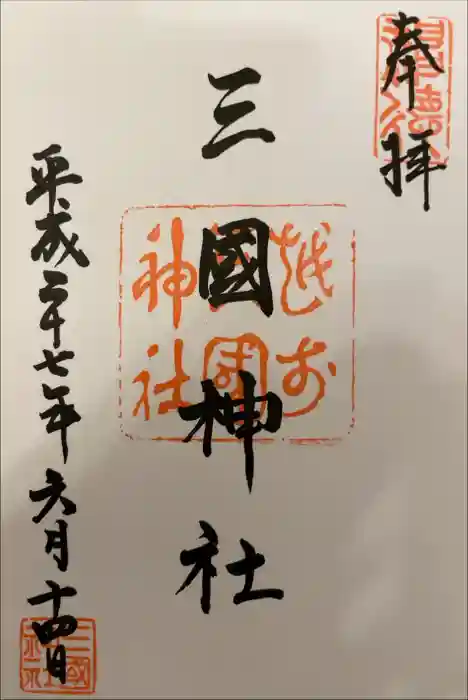 奉拝
三國神社
越前
三國
神社
平成二十七年六月十四日
三國